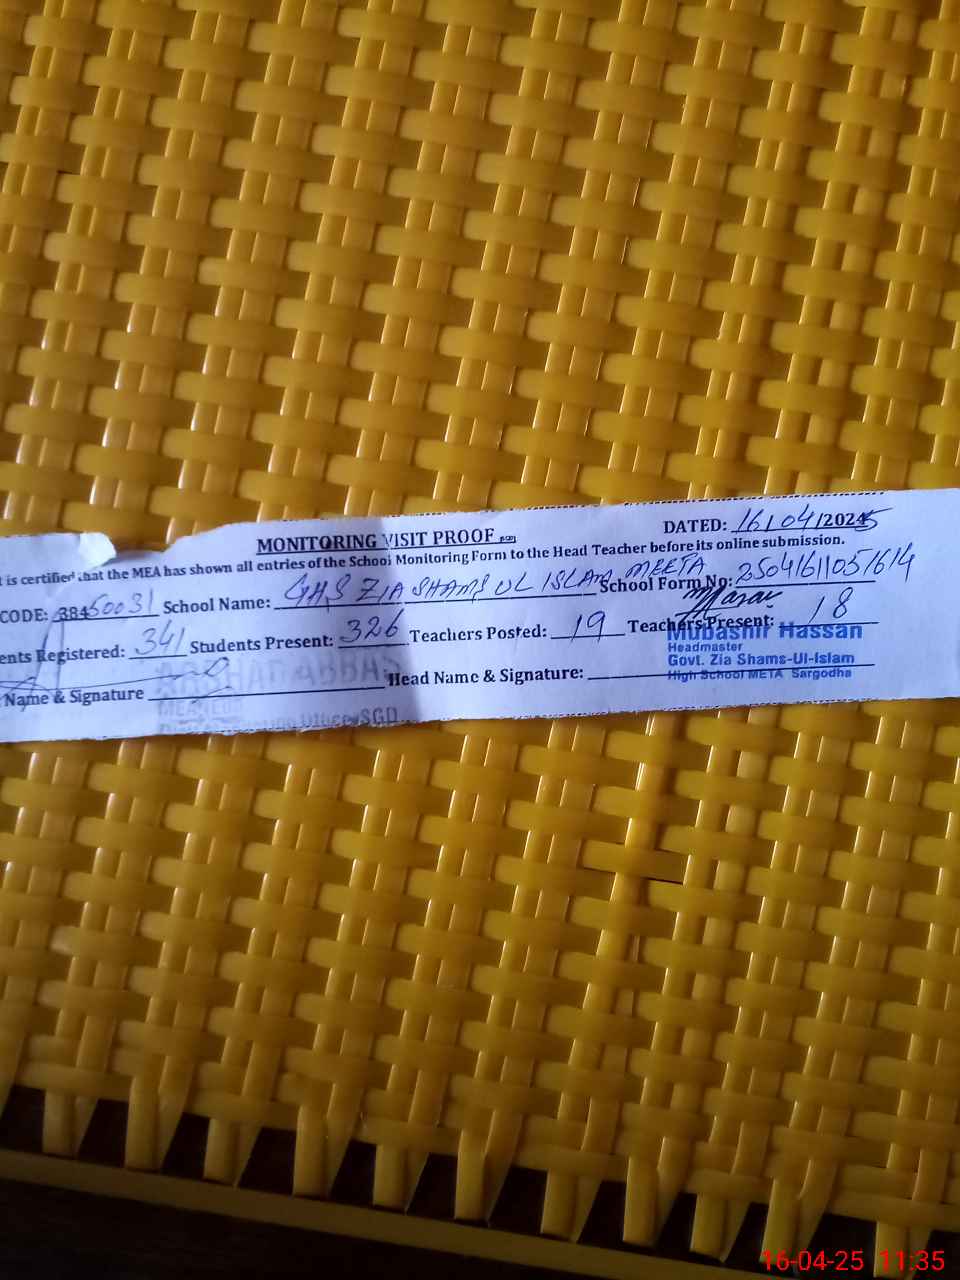 MONITORING VISIT PROOF
DATED: 16/04/2025
t is certified that the MEA has shown all entries of the School Monitoring Form to the Head Teacher before its online submission.
CODE: 38450031 School Name: GHS ZIA SHAMS UL ISLAM MEETA School Form No: 25041611051614
ents Registered: 341 Students Present: 326 Teachers Posted: 19 Teachers Present: 18
Name & Signature Head Name & Signature:
ARSHAD ABBAS
Mubashir Hassan
Headmaster
Govt. Zia Shams-Ul-Islam
High School META Sargodha
SGD
16-04-25 11:35